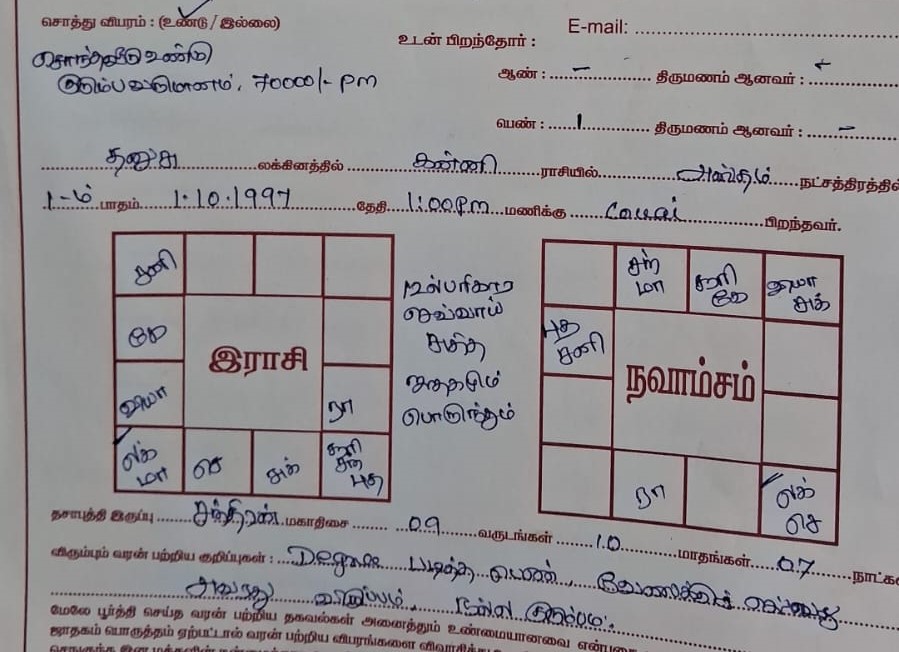 சொத்து விபரம் : (உண்டு / இல்லை)
சொந்தவீடு உண்டு
குடும்ப வருமானம், 70000/- pm
E-mail:
உடன் பிறந்தோர் :
ஆண் : - திருமணம் ஆனவர் :
பெண் : 1 திருமணம் ஆனவர் : -
தனுசு லக்கினத்தில் கன்னி ராசியில் அஸ்தம் நட்சத்திரத்தில்
1-ம் பாதம் 1.10.1997 தேதி 1:00pm மணிக்கு கோவை பிறந்தவர்.
சனி
கே
வியா
லக்
மா
செ
சுக்
சூரி
சந்
புத
ரா
இராசி
செவ்வாய்
பொருந்தும்
சந்
மா
சூரி
கே
வியா
சுக்
புத
சனி
நவாம்சம்
ரா
லக்
செ
தசாபுத்தி இருப்பு சந்திரன் மகாதிசை 09 வருடங்கள் 10 மாதங்கள் 07 நாட்க
விரும்பும் வரன் பற்றிய குறிப்புகள் : Degree படித்த பெண்,
விருப்பம், நல்ல குடும்பம்.
மேலே பூர்த்தி செய்த வரன் பற்றிய தகவல்கள் அனைத்தும் உண்மையானவை என்பதை
ஜாதகம் பொருத்தம் ஏற்பட்டால் வரன் பற்றிய விபரங்களை